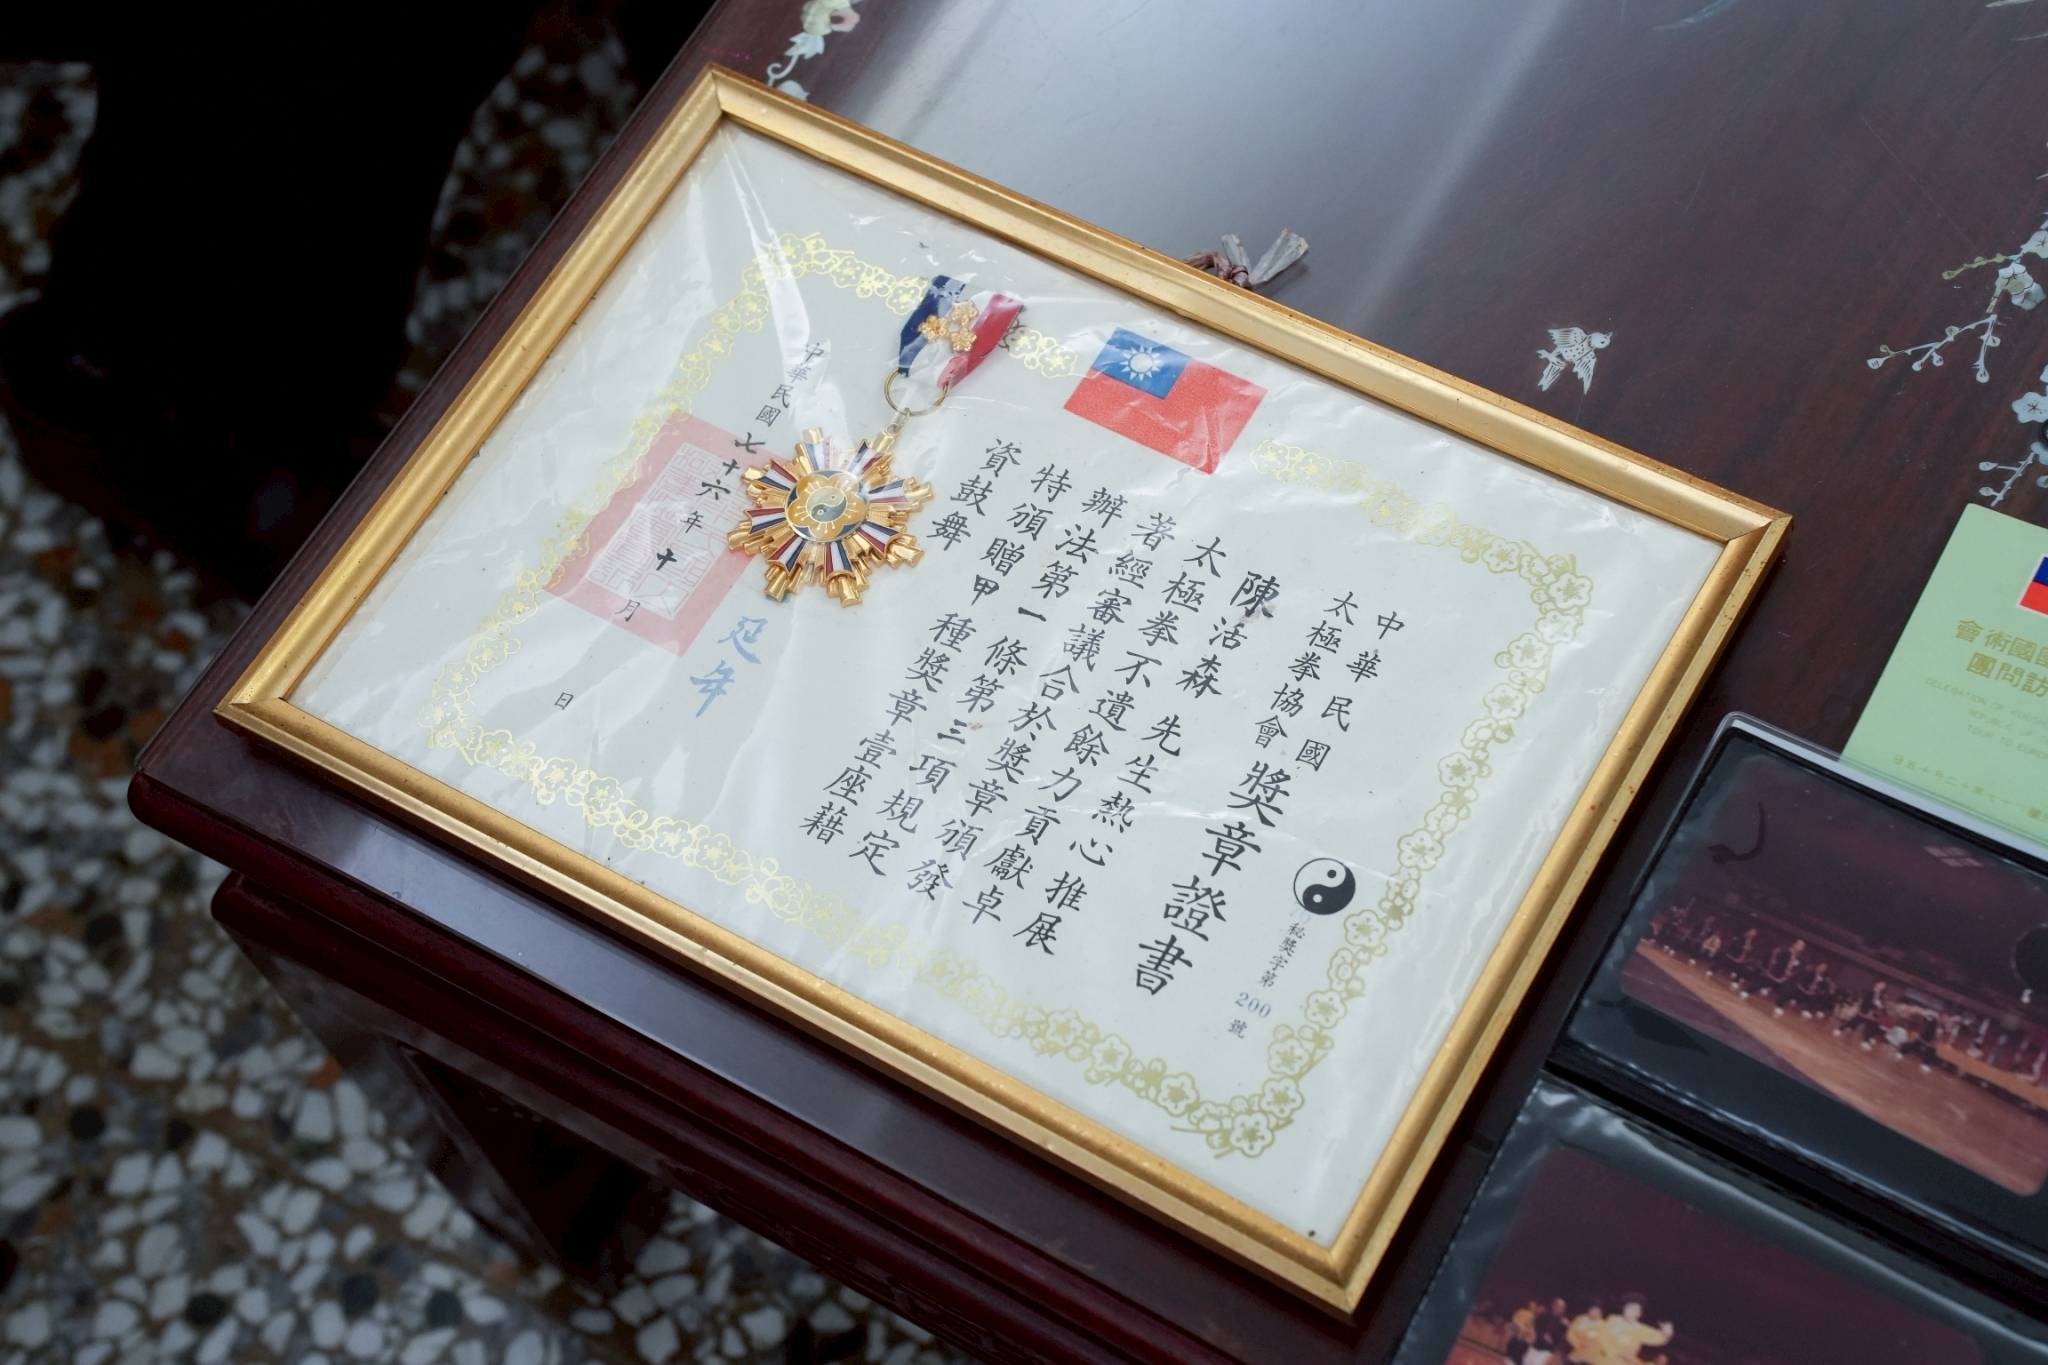 中華民國
太極拳協會
獎章證書
秘獎字第200號
陳活森先生熱心推展
太極拳不遺餘力貢獻卓
著經審議合於獎章頒發
辦法第一條第三項規定
特頒贈甲種獎章壹座藉
資鼓舞
延年
中華民國七十六年十月日
會術國
團問訪